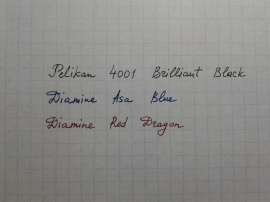 Pelikan 4001 Brilliant Black
Diamine Asa Blue
Diamine Red Dragon